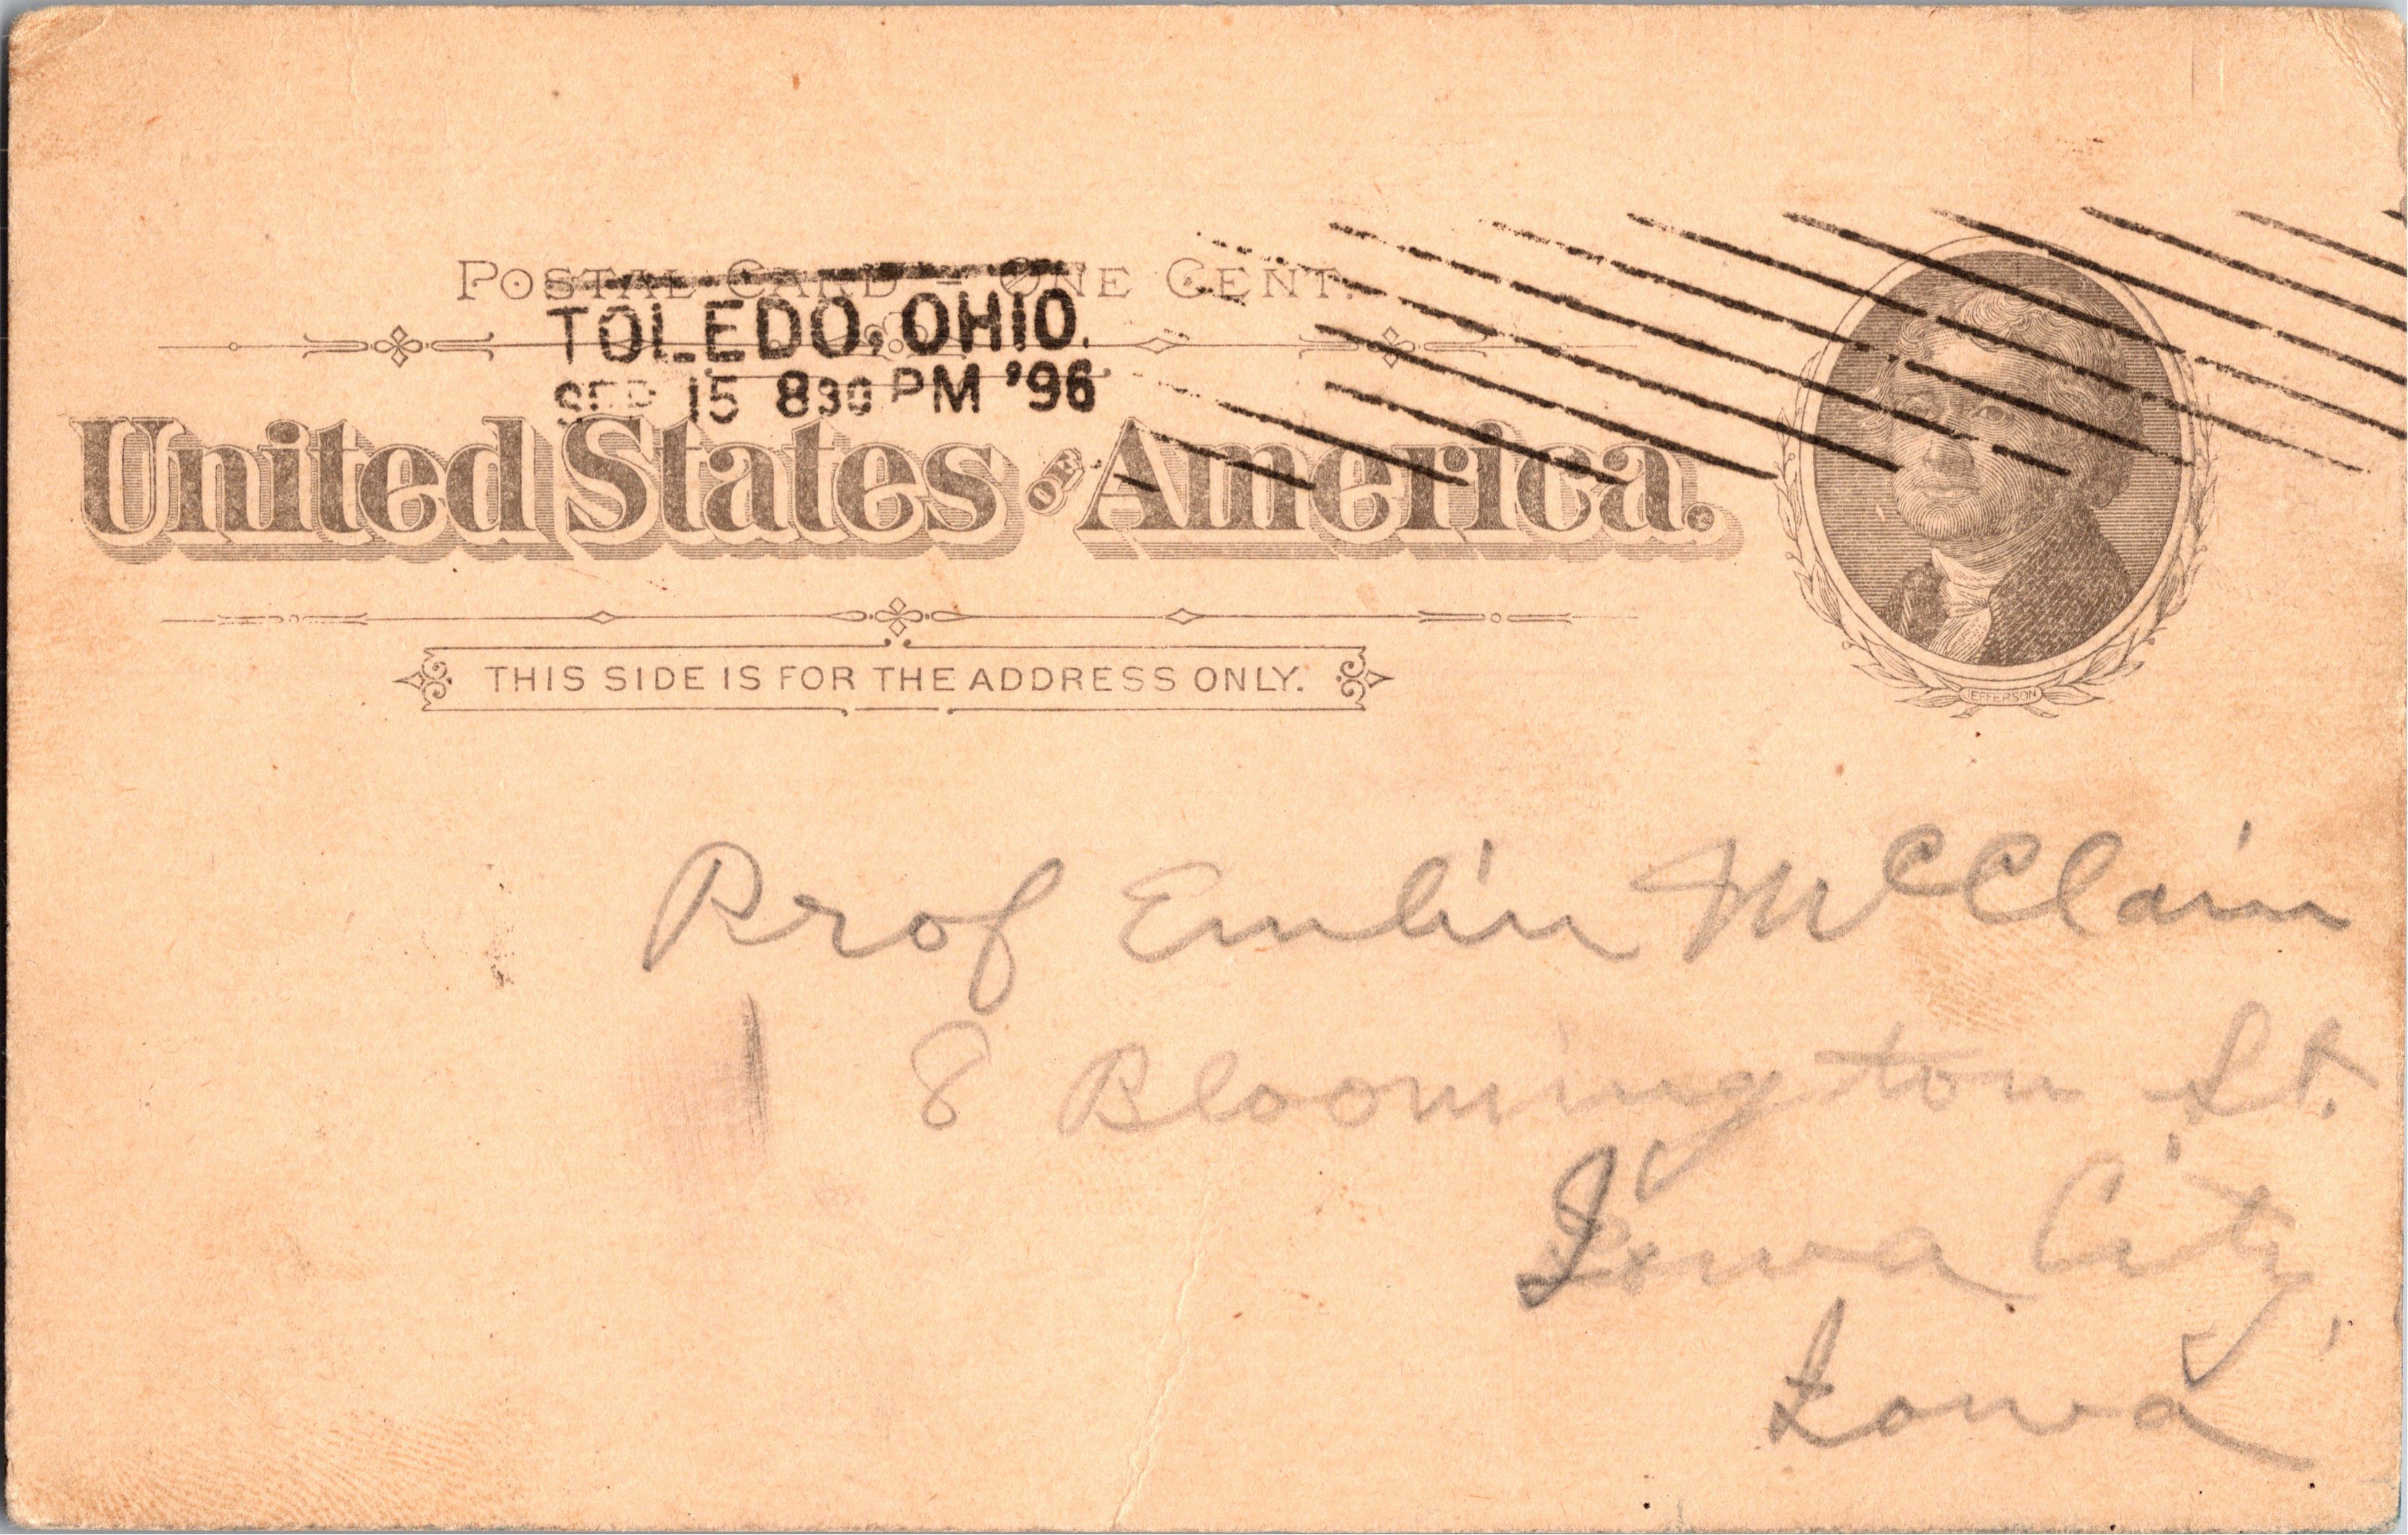 POSTAL CARD - ONE CENT.
TOLEDO, OHIO.
SEP 15 830 PM '96
United States OF America.
THIS SIDE IS FOR THE ADDRESS ONLY.
JEFFERSON
Prof Emlin McClain
8 Bloomington St.
Iowa City
Iowa